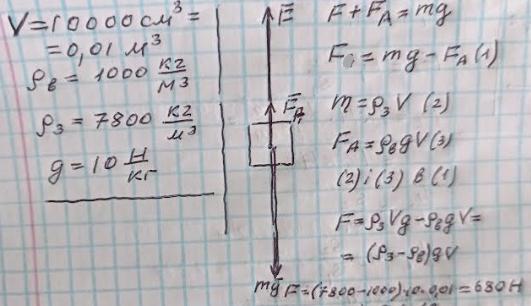 V=10000см³=
=0,01 м³
ρв = 1000 кг/м³
ρз = 7800 кг/м³
g = 10 Н/кг
F
FА
mg
F + FА = mg
F = mg - FА (1)
m = ρзV (2)
FА = ρвgV (3)
(2) і (3) в (1)
F = ρзVg - ρвgV =
= (ρз - ρв)gV
F = (7800-1000)·10·0,01 = 680 Н